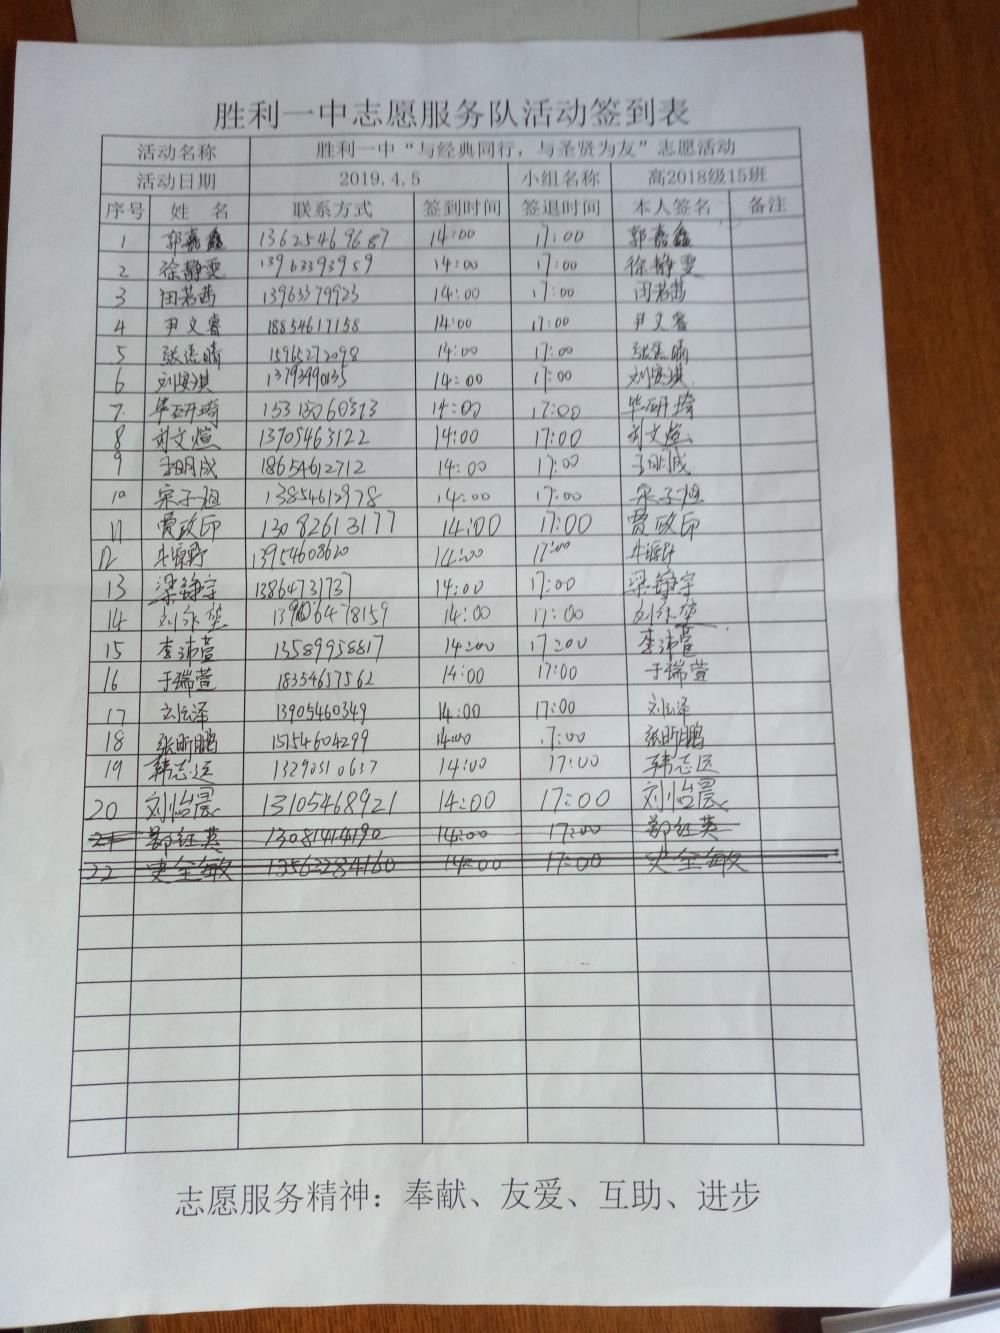 胜利一中志愿服务队活动签到表
活动名称 胜利一中“与经典同行，与圣贤为友”志愿活动
活动日期 2019.4.5 小组名称 高2018级15班
序号 姓 名 联系方式 签到时间 签退时间 本人签名 备注
1 郭嘉鑫 13625469687 14:00 17:00 郭嘉鑫
2 徐静雯 13963393959 14:00 17:00 徐静雯
3 田茗茜 13963379923 14:00 17:00 田茗茜
4 尹文睿 18854617158 14:00 17:00 尹文睿
5 15965272098 14:00 17:00
6 刘安淇 13793990135 14:00 17:00 刘安淇
7 毕研琦 15315060313 14:00 17:00 毕研琦
8 刘文煊 13705463122 14:00 17:00 刘文煊
9 于明成 18654612712 14:00 17:00 于明成
10 宋子旭 13854612978 14:00 17:00 宋子旭
11 贾政印 13082613177 14:00 17:00 贾政印
12 13954608620 14:00 17:00
13 梁铮宇 13864731737 14:00 17:00 梁铮宇
14 13906478159 14:00 17:00
15 李沛萱 13589958817 14:00 17:00 李沛萱
16 于瑞萱 18354657562 14:00 17:00 于瑞萱
17 13905460349 14:00 17:00
18 张昕鹏 15154604299 14:00 17:00 张昕鹏
19 韩志远 13290310637 14:00 17:00 韩志远
20 刘怡晨 13105468921 14:00 17:00 刘怡晨
21 郑红英 13081414190 14:00 17:00 郑红英
22 史全敏 13562284160 14:00 17:00 史全敏
志愿服务精神：奉献、友爱、互助、进步